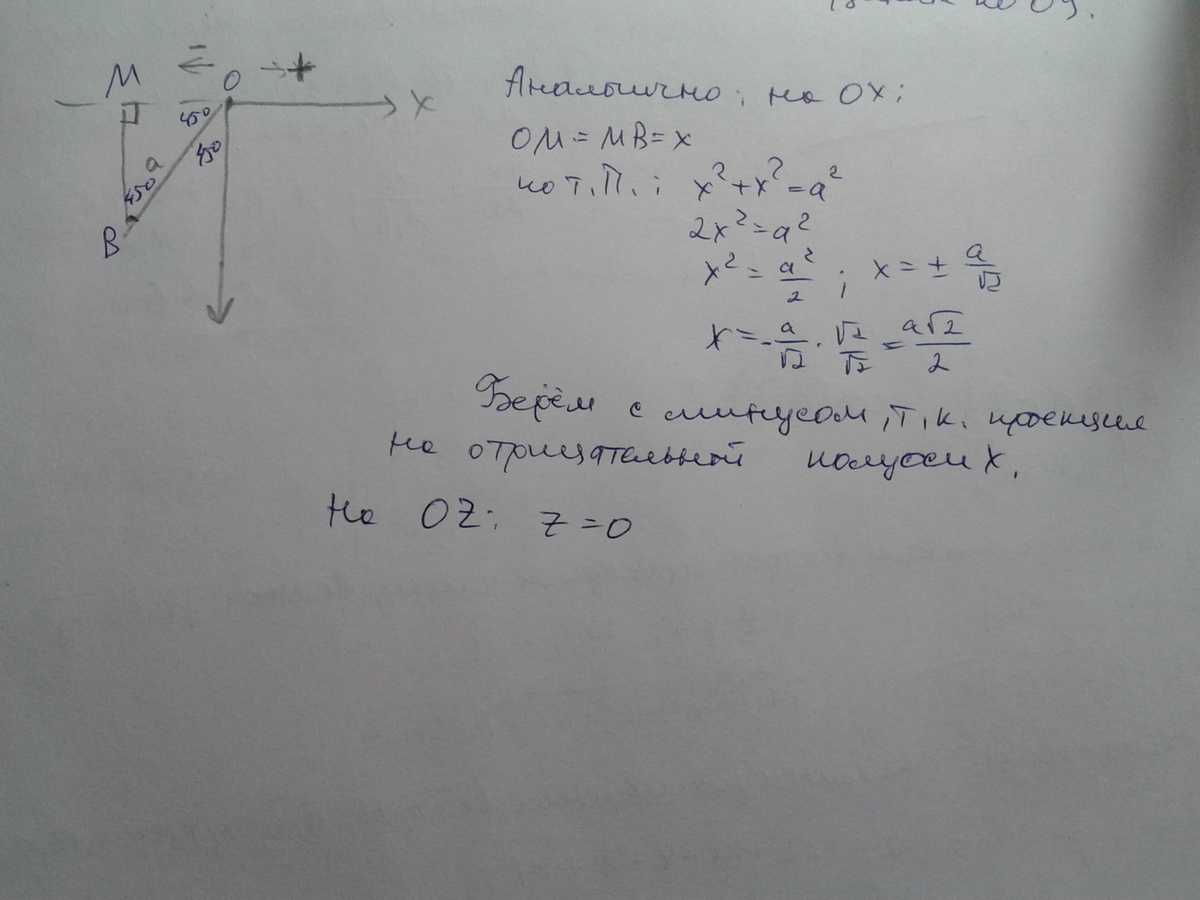 по OY.
M
−
+
O
X
45°
45°
a
45°
B
Аналогично: на OX:
OM = MB = x
по т. П.: x² + x² = a²
2x² = a²
x² = a²/2 ; x = ± a/√2
x = - a/√2 · √2/√2 = a√2/2
Берём с минусом, т.к. проекция
на отрицательной полуоси X.
На OZ: z = 0